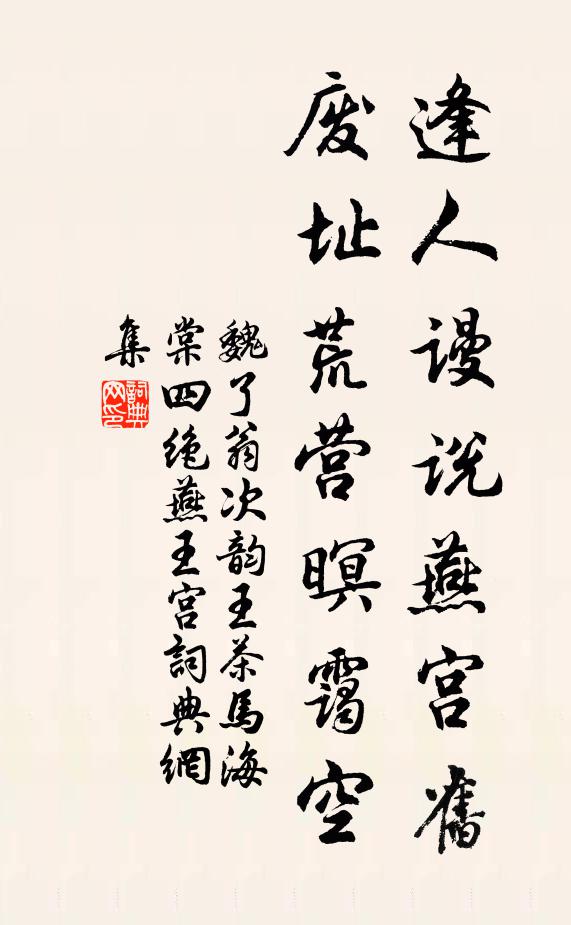 逢人谩说燕宫舊
废址荒营暝霭空
魏了翁次韵王茶馬海
棠四绝燕王宫詞典網
集
詞典网印